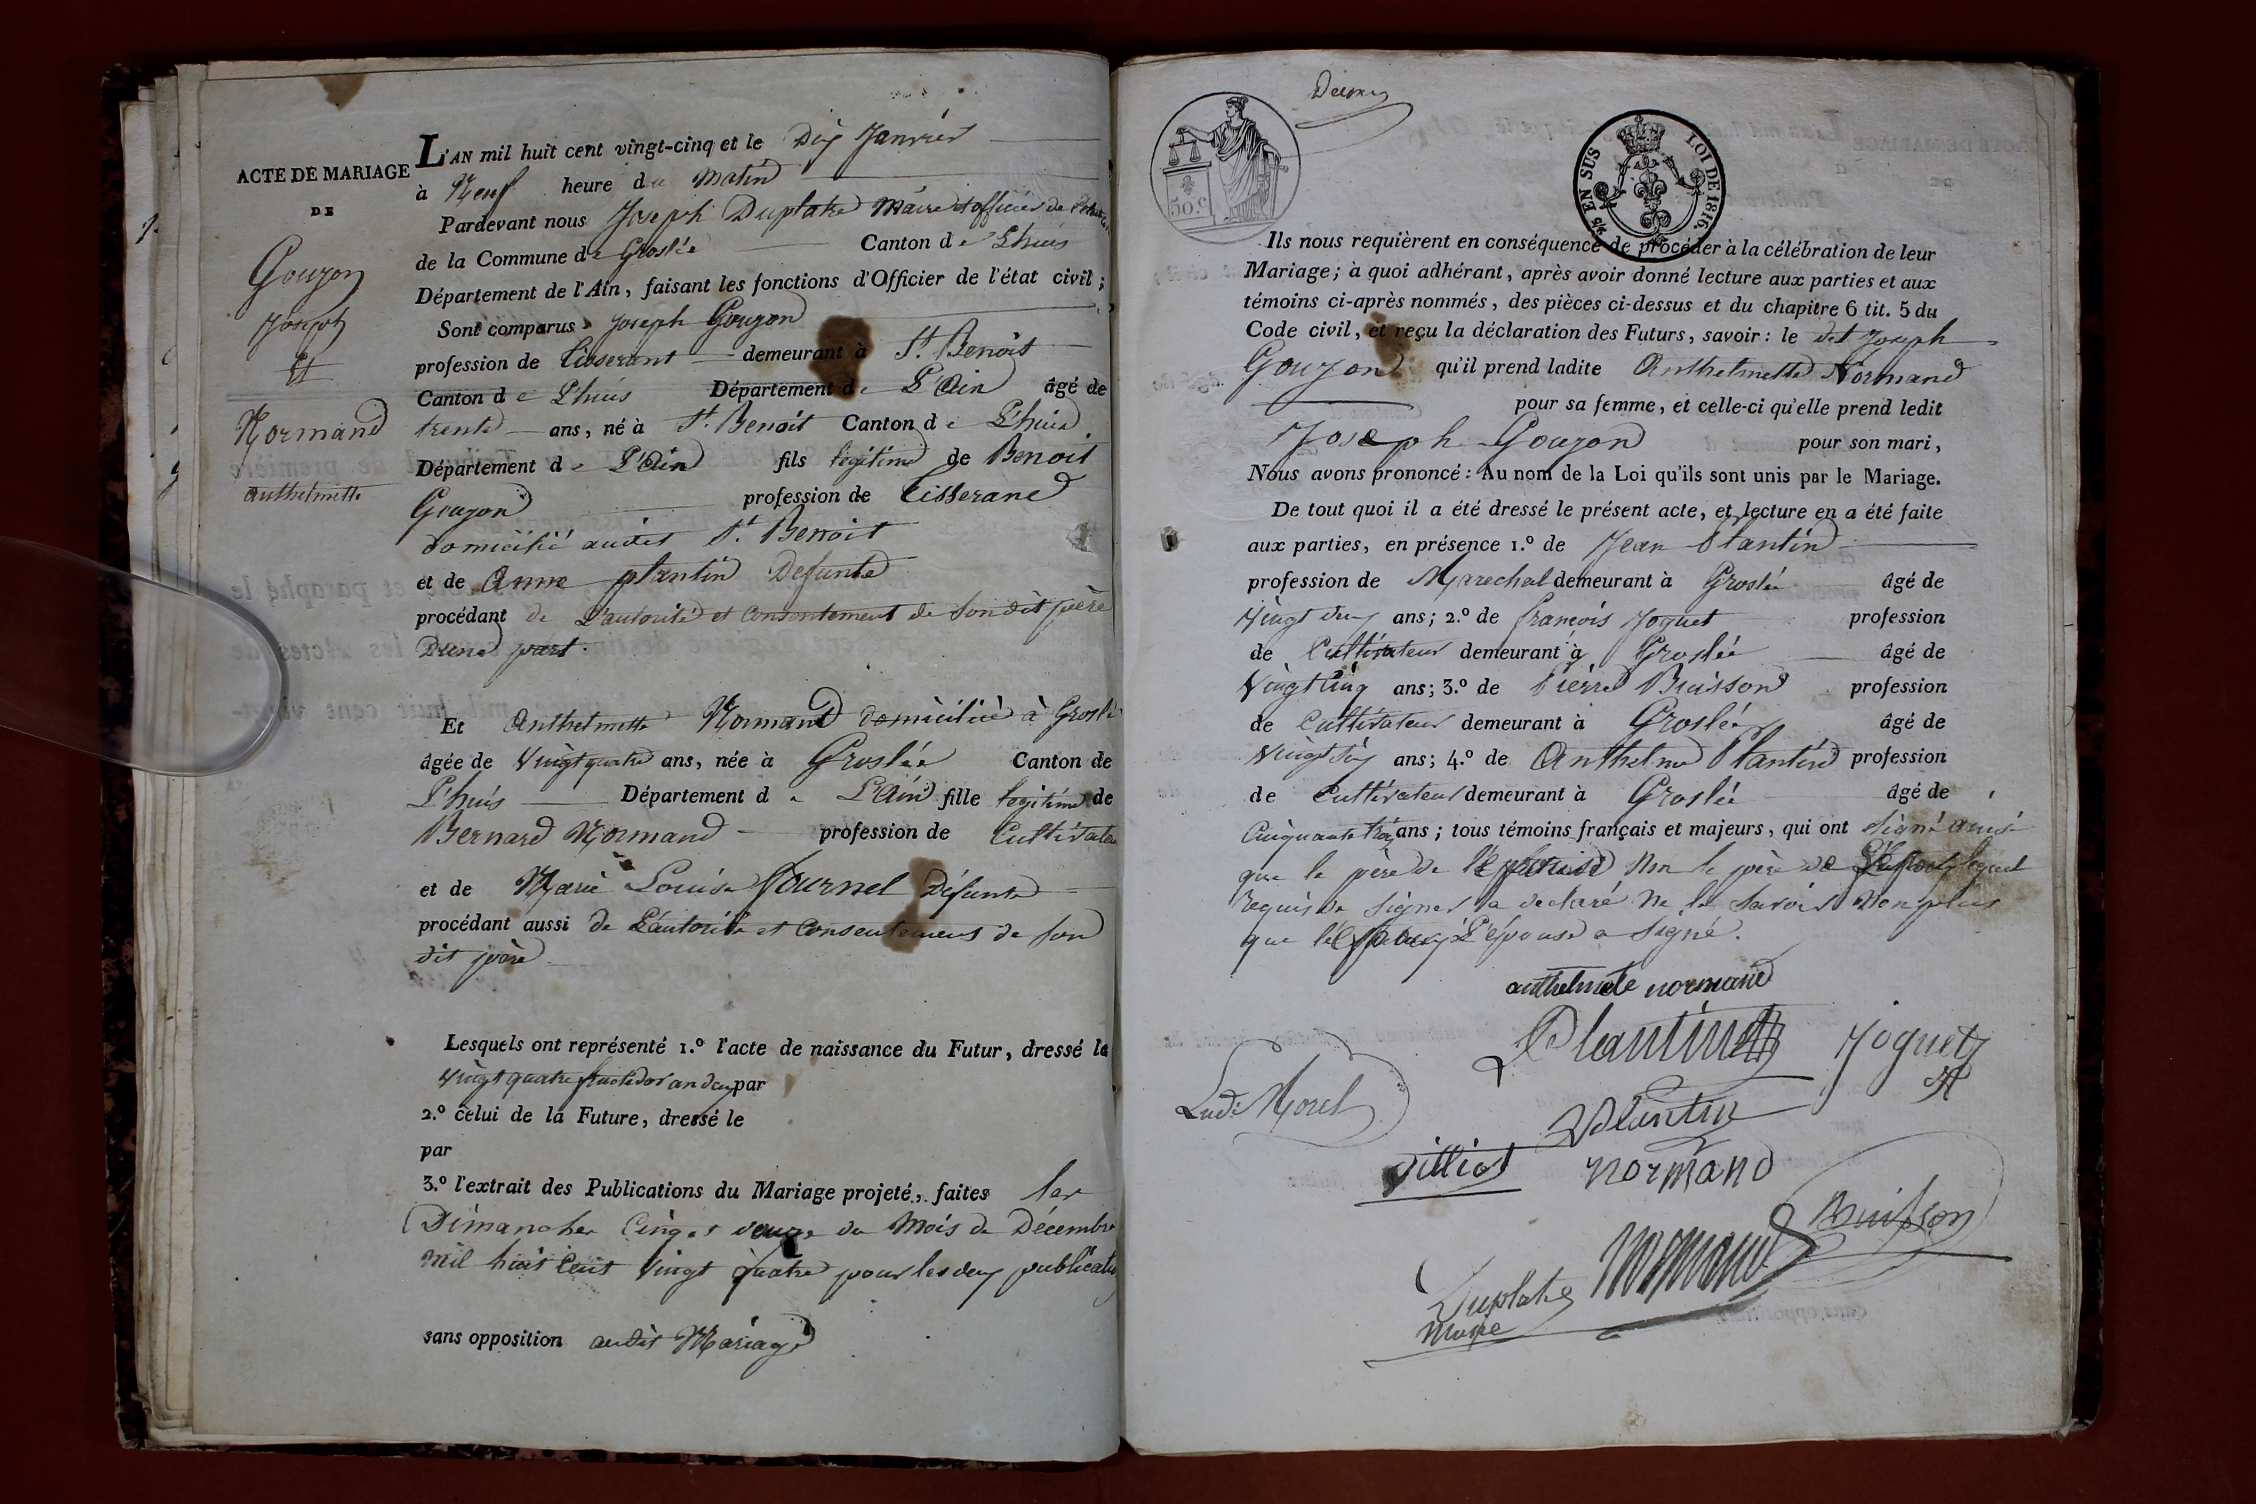 ACTE DE MARIAGE
DE
Gouzon
Joseph
Et
Normand
anthelmette
L'AN mil huit cent vingt-cinq et le Dix Janvier
à Neuf heure du matin
Pardevant nous Joseph Duplatre Maire et officier de l'état
de la Commune de Groslée Canton de Lhuis
Département de l'Ain, faisant les fonctions d'Officier de l'état civil;
Sont comparus Joseph Gouzon
profession de tisserant demeurant à St. Benoit
Canton de Lhuis Département de L'Ain âgé de
trente ans, né à St. Benoit Canton de Lhuis
Département de L'Ain fils légitime de Benoit
Gouzon profession de tisserand
domicilié audit St. Benoit
et de Anne plantin Defunte
procédant de L'autorité et Consentement de Sondit père
D'une part.
Et Anthelmette Normand domiciliée à Groslé
âgée de Vingt quatre ans, née à Groslée Canton de
Lhuis Département de L'Ain fille légitime de
Bernard Normand profession de Cultivateur
et de Marie Louise fournel Défunte
procédant aussi de L'autorité et Consentement de Son
dit père
Lesquels ont représenté 1.º l'acte de naissance du Futur, dressé le
Vingt quatre fructidor an deux par
2.º celui de la Future, dressé le
par
3.º l'extrait des Publications du Mariage projeté, faites les
Dimanches Cinq et douze du Mois de Décembre
mil huit Cent Vingt quatre pour les deux publicatio
sans opposition audit Mariage
50.c
EN SUS
LOI DE 1816
Ils nous requièrent en conséquence de procéder à la célébration de leur
Mariage; à quoi adhérant, après avoir donné lecture aux parties et aux
témoins ci-après nommés, des pièces ci-dessus et du chapitre 6 tit. 5 du
Code civil, et reçu la déclaration des Futurs, savoir: le dit Joseph
Gouzon qu'il prend ladite Anthelmette Normand
pour sa femme, et celle-ci qu'elle prend ledit
Joseph Gouzon pour son mari,
Nous avons prononcé: Au nom de la Loi qu'ils sont unis par le Mariage.
De tout quoi il a été dressé le présent acte, et lecture en a été faite
aux parties, en présence 1.º de Jean Plantin
profession de Marechal demeurant à Groslée âgé de
Vingt deux ans; 2.º de françois Joguet profession
de Cultivateur demeurant à Groslée âgé de
Vingt Cinq ans; 3.º de Pierre Buisson profession
de Cultivateur demeurant à Groslée âgé de
Vingt Six ans; 4.º de Anthelme Plantin profession
de Cultivateur demeurant à Groslée âgé de
Cinquante trois ans; tous témoins français et majeurs, qui ont Signé ainsi
que le père de l'épouse Non le père de L'époux lequel
requis de Signer a declaré Ne le Savoir Non plus
que l'époux L'épouse a Signé.
anthelmete normand
Plantin
Joguet
Morel
Plantin
villiot
normand
Buisson
normand
Duplatre
Maire